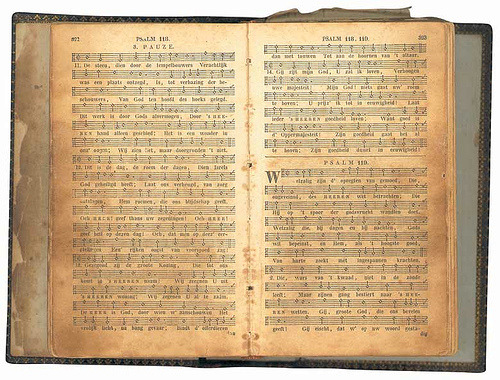 372 PSALM 118.
3. PAUZE.
11. De steen, dien door de tempelbouwers Verachtlijk
was een plaats ontzegd, Is, tot verbazing der be-
schouwers, Van God ten hoofd des hoeks gelegd.
Dit werk is door Gods alvermogen, Door 's HEE-
REN hand alleen geschied; Het is een wonder in
ons' oogen; Wij zien het, maar doorgronden 't niet.
12. Dit is de dag, de roem der dagen, Dien Israels
God geheiligd heeft; Laat ons verheugd, van zorg
ontslagen, Hem roemen, die ons blijdschap geeft.
Och HEER! geef thans uw zegeningen! Och HEER!
geef heil op dezen dag! Och, dat men op deez' eer-
stelingen Een rijken oogst van voorspoed zag.
Gezegend zij de groote Koning, Die tot ons
komt in 's HEEREN naam! Wij zegenen U uit
's HEEREN woning; Wij zegenen U al te zaâm.
De HEER is God, door wien w' aanschouwen Het
vrolijk licht, na bang gevaar; Bindt d' offerdieren
PSALM 118. 119.
dan met touwen Tot aan de hoornen van 't altaar.
14. Gij zijt mijn God, U zal ik loven, Verhoogen
uwe majesteit; Mijn God! niets gaat uw' roem
te boven; U prijz' ik tot in eeuwigheid! Laat
ieder 's HEEREN goedheid loven; Want goed is
d' Oppermajesteit! Zijn goedheid gaat het al
te boven; Zijn goedheid duurt in eeuwigheid!
PSALM 119.
Welzalig zijn d' oprechten van gemoed, Die,
ongeveinsd, des HEEREN wet betrachten; Die
Hij op 't spoor der godsvrucht wandlen doet;
Welzalig die, bij dagen en bij nachten, Gods
wil bepeinst, en Hem, als 't hoogste goed,
Van harte zoekt met ingespannen krachten.
2. Die, wars van 't kwaad, niet in de zonde
leeft; Maar zijnen gang bestiert naar 's HEE-
REN wetten. Gij, groote God, die ons bevelen
geeft! Gij eischt, dat w' op uw woord gesta-